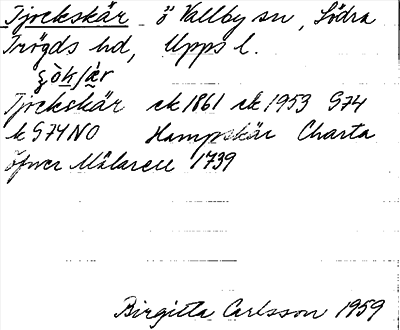 Tjockskär ö Vallby sn, Södra
Trögds hd, Upps l.
Tjockskär ek 1861 ek 1953 G74
k G74NO Hampskär Charta
öfwer Mälaren 1739
Birgitta Carlsson 1959